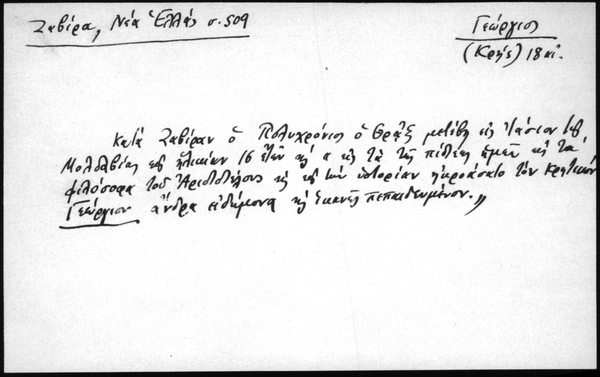 Ζαβίρα, Νέα Ἑλλάς σ. 509
Γεώργιος
(Κρής) 18 αἰ.
Κατά Ζαβίραν ὁ Πολυχρόνιος ὁ Θρᾷξ μετέβη εἰς Ἰάσιον τῆς
Μολδαβίας εἰς ἡλικίαν 16 ἐτῶν κ' εἰς τά τῆς πίστεως ἡμῶν κ' τά
φιλόσοφα τοῦ Ἀριστοτέλους κ' εἰς τήν ἱστορίαν ἠκροάσατο τόν Κρητικόν
Γεώργιον ἄνδρα εἰδήμονα κ' ἱκανῶς πεπαιδευμένον."